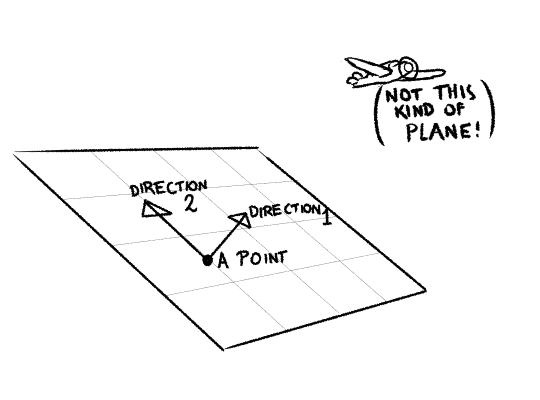 (NOT THIS
KIND OF
PLANE!)
DIRECTION
2
DIRECTION 1
A POINT